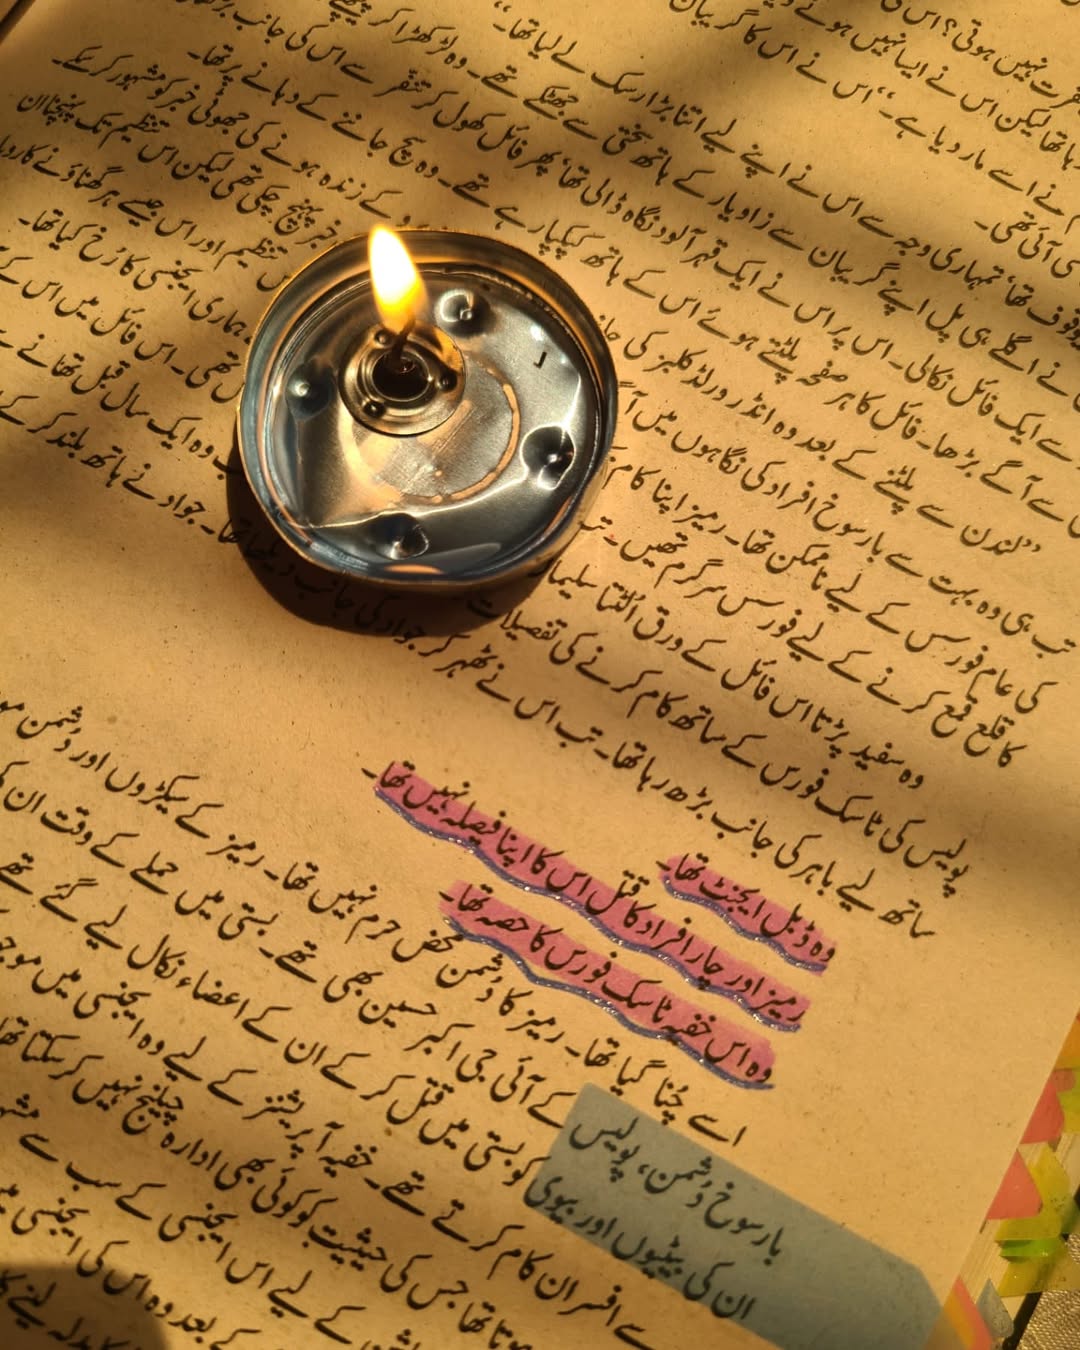 نہیں ہوتی؟ اس کی
رہا تھا لیکن اس نے ایسا نہیں ہونے
نے اسے مار دیا ہے۔“ اس نے اس کا گریبان
آئی تھی۔
تھا، تمہاری وجہ سے اس نے اپنے لیے اتنا بڑا رسک لے لیا تھا۔“
نے اگلے ہی پل اپنے گریبان سے زاویار کے ہاتھ سختی سے جھٹکے تھے۔ وہ لڑکھڑا کر پیچھے
سے ایک فائل نکالی۔ اس پر اس نے ایک قہر آلود نگاہ ڈالی تھا، پھر فائل کھول کر تنفّر سے اس کی جانب
سے آگے بڑھا۔ فائل کا ہر صفحہ پلٹتے ہوئے اس کے ہاتھ کپکپا رہے تھے۔ وہ سچ جاننے کے دہانے پر تھا۔
”لندن سے پلٹنے کے بعد وہ انڈر ورلڈ کلبز کی کے زندہ ہونے کی جھوٹی خبر کو مشہور کر سکے۔
تب ہی وہ بہت سے بارسوخ افراد کی نگاہوں میں خبر پہنچ چکی تھی لیکن اس تنظیم تک پہنچنا ان
کی عام فورسس کے لیے ناممکن تھا۔ رمیز اپنا کام تنظیم اور اس جیسے ہر گھناؤنے
کا قلع قمع کرنے کے لیے فورسس سرگرم تھیں۔ تب ہماری ایجنسی کا رُخ کیا تھا۔
وہ سفید پڑتا اس فائل کے ورق اُلٹتا تھی۔ اس فائل میں اس کے
پولیس کی ٹاسک فورس کے ساتھ کام کرنے کی تفصیلات وہ ایک سال قبل تھانے سے
ساتھ لیے باہر کی جانب بڑھ رہا تھا۔ تب اس نے ٹھہر کر جواد کی جانب دیکھا تھا۔ جواد نے ہاتھ بلند کر کے
وہ ڈبل ایجنٹ تھا۔
رمیز اور چار افراد کا قتل اس کا اپنا فیصلہ نہیں تھا۔
وہ اس خفیہ ٹاسک فورس کا حصہ تھا۔
اسے چُنا گیا تھا۔ رمیز کا دُشمن محض حرم نہیں تھا۔ رمیز کے سیکڑوں اور دُشمن
بارسوخ دُشمن، پولیس کے آئی جی اکبر حسین بھی تھے۔ بستی میں حملے کے وقت ان
ان کی بیٹیوں اور بیوی کو بستی میں قتل کر کے ان کے اعضاء نکال لیے گئے تھے
سے افسران کام کرتے تھے۔ خفیہ آپریشنز کے لیے وہ ایجنسی میں
ہوتا تھا جس کی حیثیت کو کوئی بھی ادارہ چیلنج نہیں کر سکتا تھا
کے لیے اس ایجنسی کے سب سے
کے بعد وہ اس کی ایجنسی
بدلہ لینے